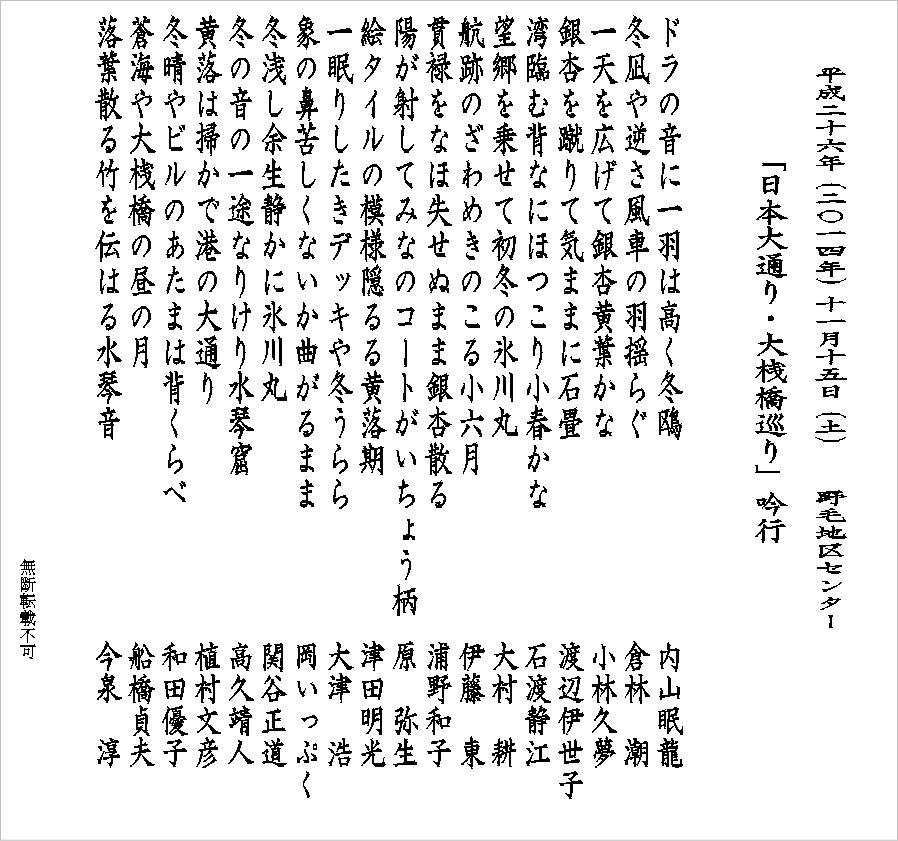 平成二十六年（二〇一四年）十一月十五日（土）　野毛地区センター
「日本大通り・大桟橋巡り」吟行
ドラの音に一羽は高く冬鴎　内山眠龍
冬凪や逆さ風車の羽揺らぐ　倉林　潮
一天を広げて銀杏黄葉かな　小林久夢
銀杏を蹴りて気ままに石畳　渡辺伊世子
湾臨む背なにほつこり小春かな　石渡静江
望郷を乗せて初冬の氷川丸　大村　耕
航跡のざわめきのこる小六月　伊藤　東
貫禄をなほ失せぬまま銀杏散る　浦野和子
陽が射してみなのコートがいちょう柄　原　弥生
絵タイルの模様隠るる黄落期　津田明光
一眠りしたきデッキや冬うらら　大津　浩
象の鼻苦しくないか曲がるまま　岡いっぷく
冬浅し余生静かに氷川丸　関谷正道
冬の音の一途なりけり水琴窟　高久靖人
黄落は掃かで港の大通り　植村文彦
冬晴やビルのあたまは背くらべ　和田優子
蒼海や大桟橋の昼の月　船橋貞夫
落葉散る竹を伝はる水琴音　今泉　淳
無断転載不可